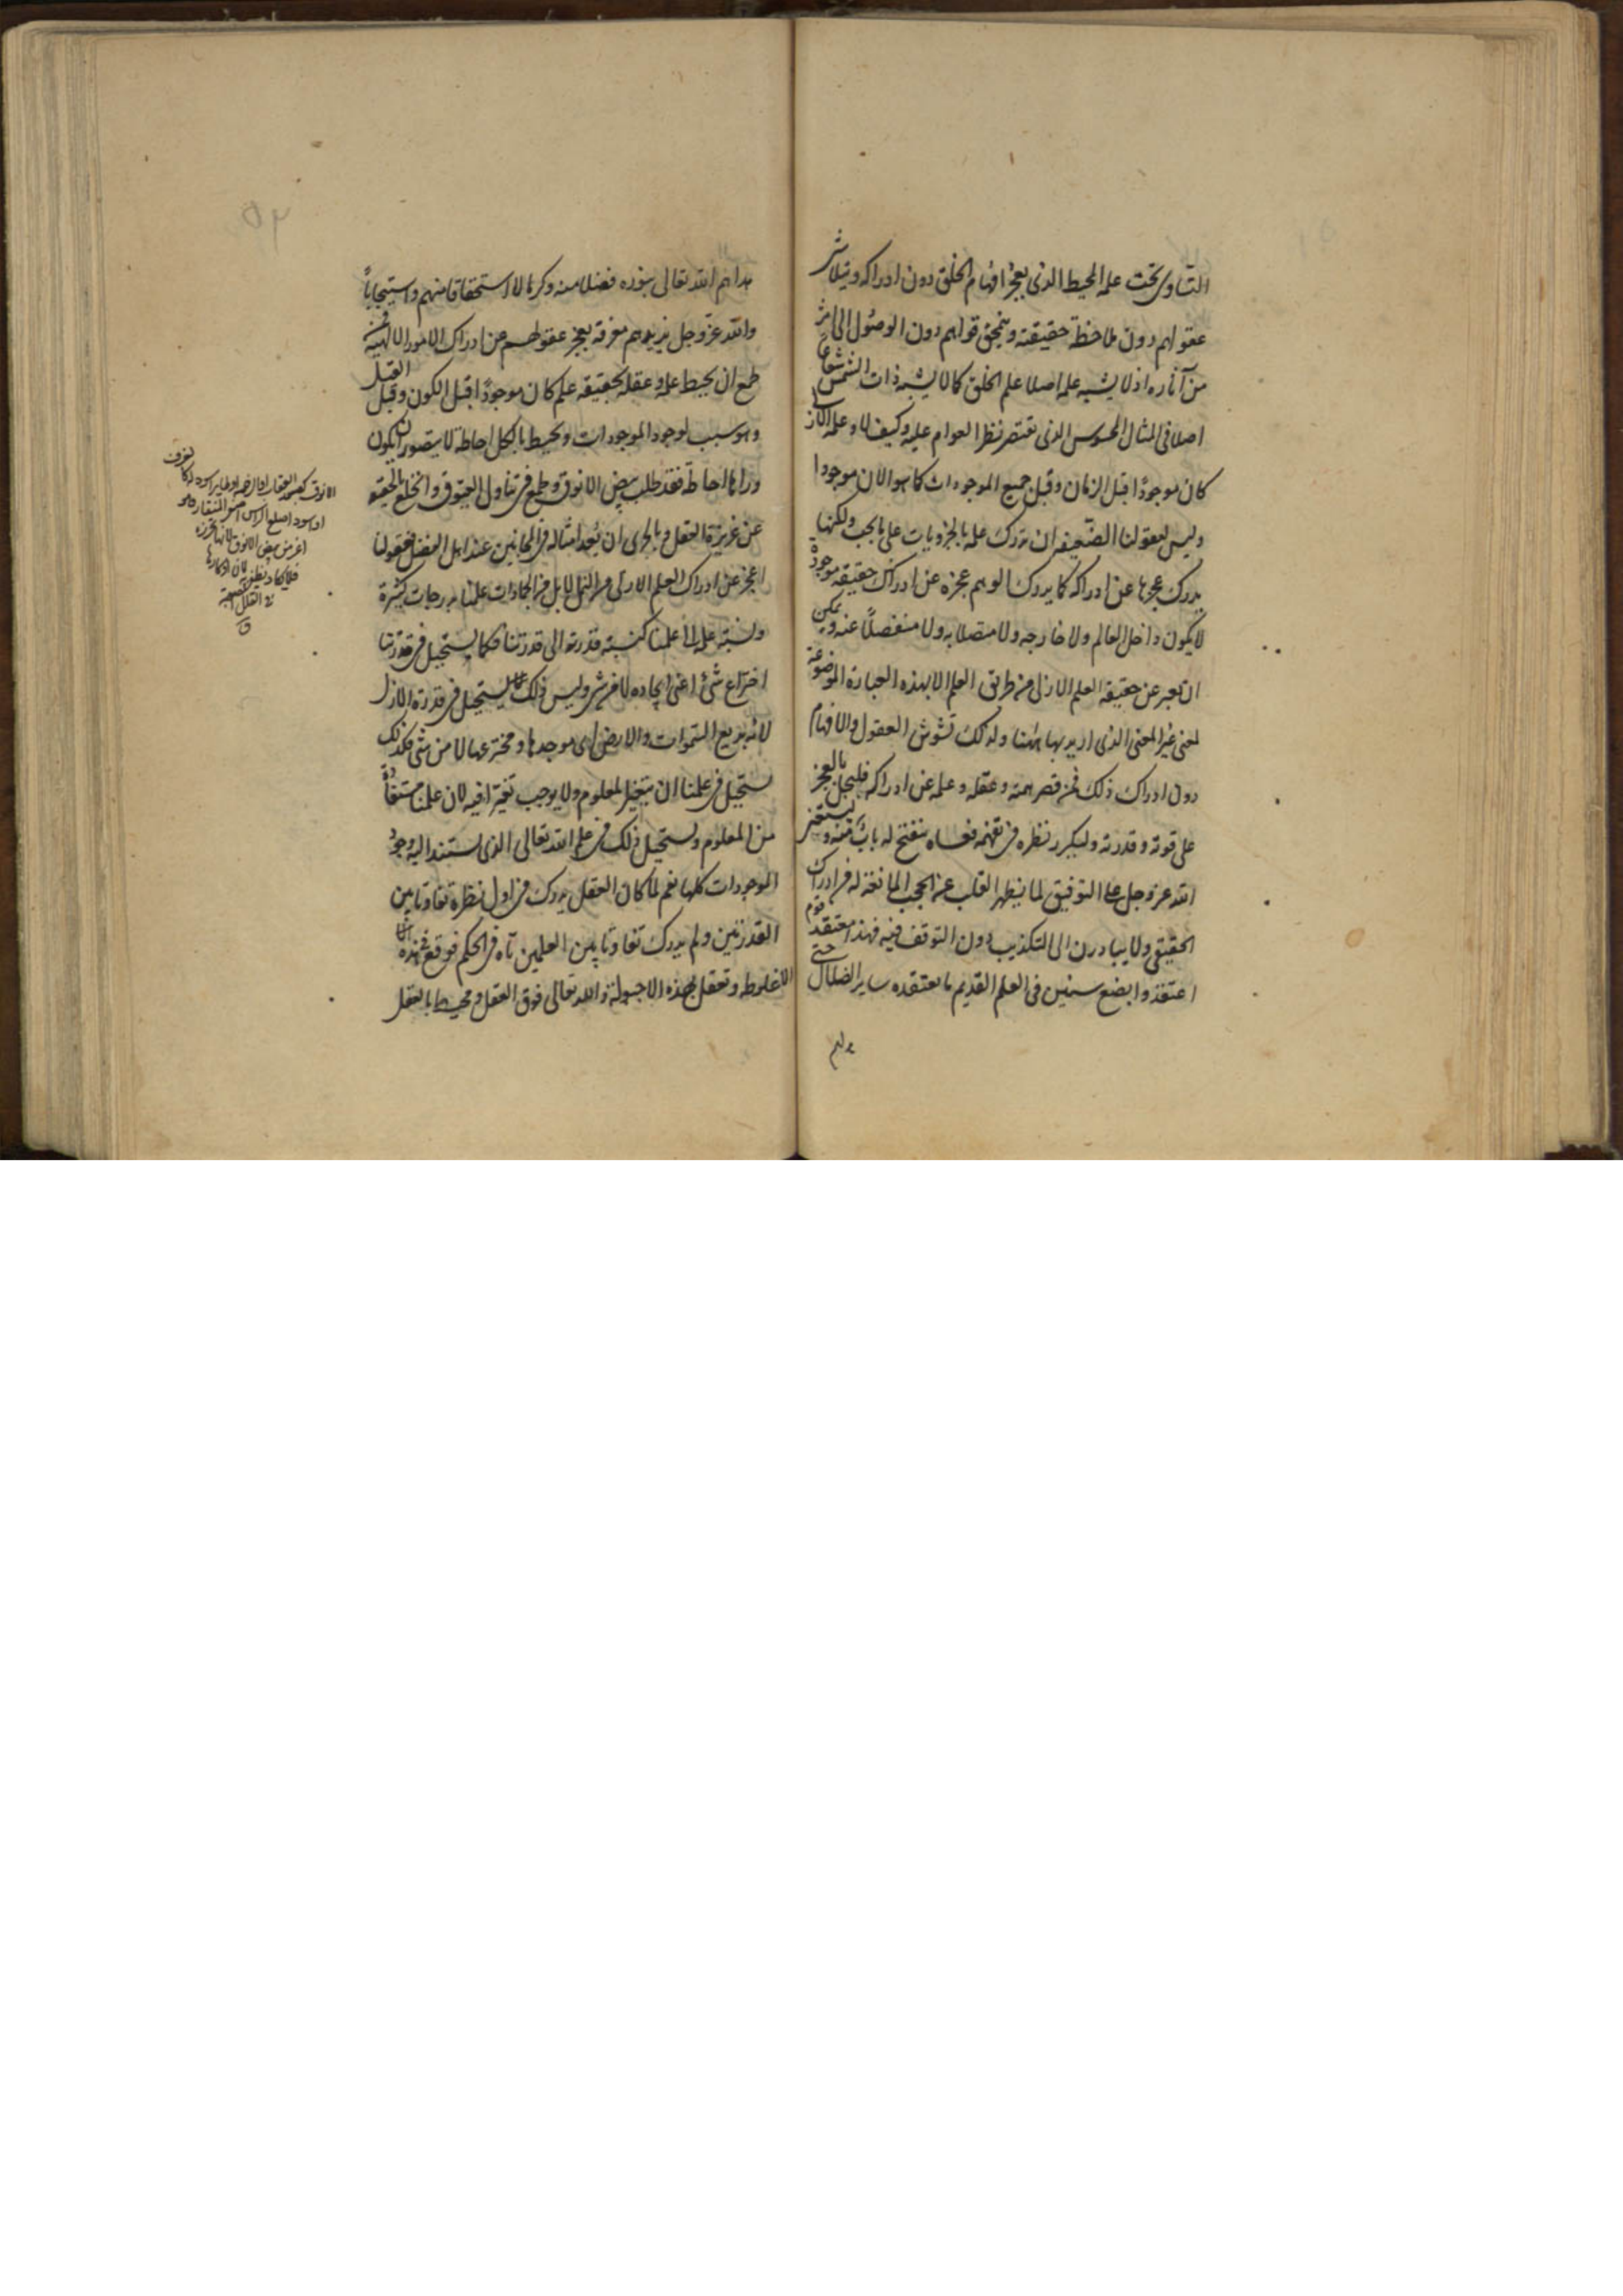 التساوى تحت علمه المحيط الذى يعجز افهام الخلق دون ادراكه ويتلاشى
عقولهم دون ملاحظة حقيقته وينمحق قواهم دون الوصول الى اثر
من آثاره اذ لا يشبه علمه اصلا علم الخلق كما لا يشبه ذات الشمس شعاعها
اصلا فى المثال المحسوس الذى تقتصر نظر العوام عليه وكيف لا وعلمه الازلى
كان موجودًا قبل الزمان وقبل جميع الموجودات كما هو الان موجودا
وليس لعقولنا الضعيفة ان تدرك علمه بالجزويات على ما يجب ولكنها
يدرك عجزها عن ادراكه كما يدرك الوهم عجزه عن ادراك حقيقة موجود
لا يكون داخل العالم ولا خارجه ولا متصلا به ولا منفصلًا عنه وليس يمكن
ان نعبر عن حقيقة العلم الازلى من طريق العلم الا بهذه العبارة الموضوعة
لمعنى غير المعنى الذى اريد بها ههنا ولذلك تشوش العقول والافهام
دون ادراك ذلك فمن قصر همته وعقله وعلمه عن ادراكه فليحل بالعجز
على قوته وقدرته وليكرر نظره فى تفهمه فعساه ينفتح له باب منه ويستغفر
الله عز وجل على التوفيق لما يطهر القلب عن الحجب المانعة له من ادراك
الحقيقى ولا يبادرن الى التكذيب دون التوقف فيه فهذا معتقد قوم
اعتقدوا بضع سنين فى العلم القديم ما يعتقده ساير الضلال حتى
هداهم
هداهم الله تعالى بنوره فضلا منه وكرما لا استحقاقا منهم واستيجابًا
والله عز وجل يزيدهم معرفة بعجز عقولهم عن ادراك الامور الالهية فمن
طمع ان يحيط علمه وعقله بحقيقة علم كان موجودًا قبل الكون وقبل القبل
وهو سبب لوجود الموجودات ومحيط بالكل احاطة لا يتصور ان يكون
وراها احاطة فقد طلب بيض الانوق وطمع فى تناول العيوق وانخلع بالحقيقة
عن غريزة العقل وبالحرى ان يُعد امثاله فى المجانين عند اهل الفضل فعقولنا
اعجز عن ادراك العلم الازلى من النمل لا بل من الجمادات علمنا بدرجات كثيرة
ونسبة علمه الى علمنا كنسبة قدرته الى قدرتنا فكما يستحيل فى قدرتنا
اختراع شئ اعنى ايجاده لا من شى وليس ذلك مما يستحيل فى قدرة الازل
لانه بديع السموات والارض اى موجدها ومخترعها لا من شى فكذلك
يستحيل فى علمنا ان يتغير المعلوم ولا يوجب تغيرا فيه لان علمنا مستفاد
من المعلوم ويستحيل ذلك فى علم الله تعالى الذى يستند اليه وجود
الموجودات كلها نعم لما كان العقل يدرك فى اول نظرة تفاوتا بين
القدرتين ولم يدرك تفاوتا بين العلمين تاه فى الحكم فوقع فى هذه
الاغلوطه وتعقل بهذه الاحبولة والله تعالى فوق العقل ومحيط بالعقل
الانوق كصبور العقاب او الرخمة او طاير اسود له كالعرف
او اسود اصلع الراس اصفر المنقار وهو
اعز من بيض الانوق لانها تحرزه
فلا يكاد يظفر به لان اوكارها
فى القلل الصعبة
ق
٥٢